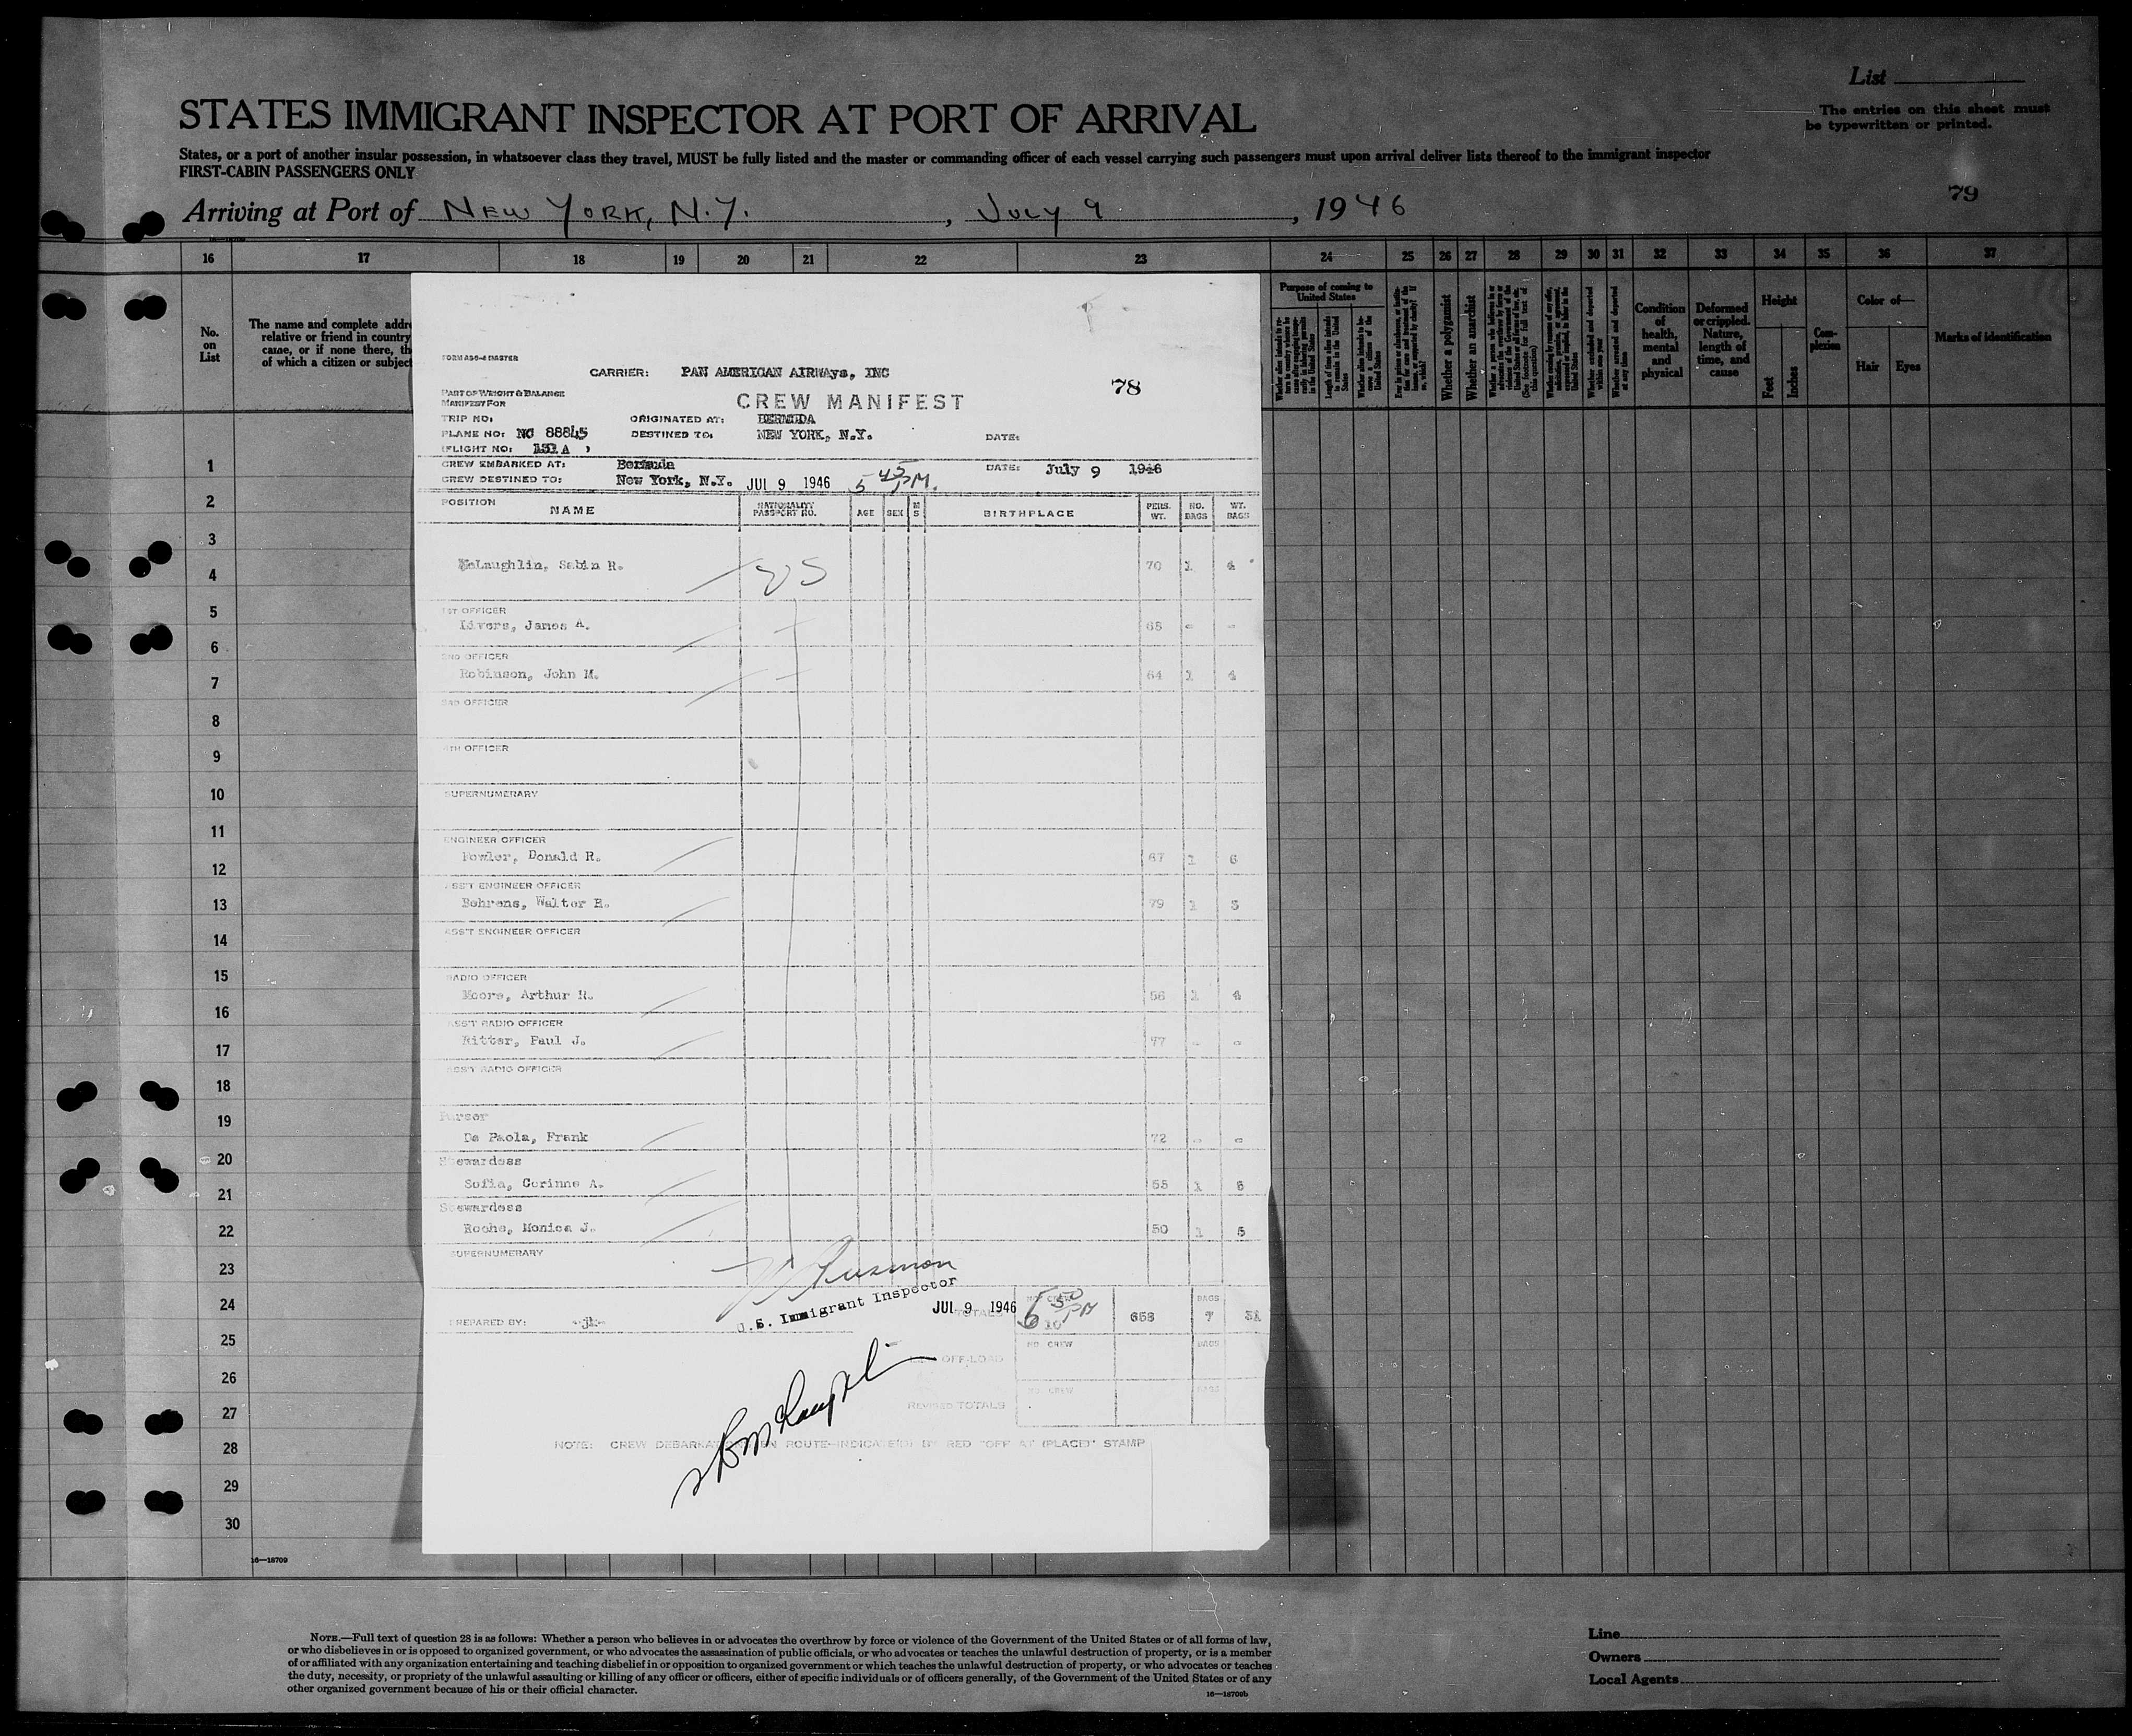 List
STATES IMMIGRANT INSPECTOR AT PORT OF ARRIVAL
The entries on this sheet must
be typewritten or printed.
States, or a port of another insular possession, in whatsoever class they travel, MUST be fully listed and the master or commanding officer of each vessel carrying such passengers must upon arrival deliver lists thereof to the immigrant inspector
FIRST-CABIN PASSENGERS ONLY
79
Arriving at Port of NEW YORK, N.Y. , JULY 9 , 1946
16 17 18 19 20 21 22 23 24 25 26 27 28 29 30 31 32 33 34 35 36 37
No.
on
List
The name and complete addr
relative or friend in country
came, or if none there, th
of which a citizen or subject
Purpose of coming to
United States
Whether a polygamist
Whether an anarchist
Condition
of
health,
mental
and
physical
Deformed
or crippled.
Nature,
length of
time, and
cause
Height
Feet
Inches
Com-
plexion
Color of—
Hair
Eyes
Marks of identification
FORM ABS-4 MASTER
CARRIER: PAN AMERICAN AIRWAYs, INC
78
PART OF WEIGHT & BALANCE
MANIFEST FOR
CREW MANIFEST
TRIP NO:
ORIGINATED AT: BERMUDA
PLANE NO: NC 88845
DESTINED TO: NEW YORK, N.Y.
DATE:
(FLIGHT NO: 131 A )
CREW EMBARKED AT: Bermuda
DATE: July 9 1946
CREW DESTINED TO: New York, N.Y. JUL 9 1946 5 45 PM.
POSITION
NAME
NATIONALITY
PASSPORT NO.
AGE
SEX
M
S
BIRTHPLACE
PERS.
WT.
NO.
BAGS
WT.
BAGS
McLaughlin, Sabin R. US 70 1 4
1ST OFFICER
Livers, James A. 68 - -
2ND OFFICER
Robinson, John M. 64 1 4
3RD OFFICER
4TH OFFICER
SUPERNUMERARY
ENGINEER OFFICER
Fowler, Donald R. 67 1 6
ASS'T ENGINEER OFFICER
Behrens, Walter R. 79 1 3
ASS'T ENGINEER OFFICER
RADIO OFFICER
Moore, Arthur R. 56 1 4
ASS'T RADIO OFFICER
Ritter, Paul J. 77 - -
ASS'T RADIO OFFICER
Purser
De Paola, Frank 72 - -
Stewardess
Sofia, Corinne A. 55 1 5
Stewardess
Roche, Monica J. 50 1 5
SUPERNUMERARY
U.S. Immigrant Inspector
JUL 9 1946
5 50 PM
PREPARED BY: -jl-
TOTALS
NO. CREW
10
658
BAGS
7
31
OFF-LOAD
NO. CREW
BAGS
REVISED TOTALS
NO. CREW
BAGS
NOTE: CREW DEBARKATION EN ROUTE—INDICATE(D) BY RED "OFF AT (PLACE)" STAMP
1
2
3
4
5
6
7
8
9
10
11
12
13
14
15
16
17
18
19
20
21
22
23
24
25
26
27
28
29
30
16—18709
NOTE.—Full text of question 28 is as follows: Whether a person who believes in or advocates the overthrow by force or violence of the Government of the United States or of all forms of law,
or who disbelieves in or is opposed to organized government, or who advocates the assassination of public officials, or who advocates or teaches the unlawful destruction of property, or is a member
of or affiliated with any organization entertaining and teaching disbelief in or opposition to organized government or which teaches the unlawful destruction of property, or who advocates or teaches
the duty, necessity, or propriety of the unlawful assaulting or killing of any officer or officers, either of specific individuals or of officers generally, of the Government of the United States or of any
other organized government because of his or their official character.
16—18709b
Line
Owners
Local Agents